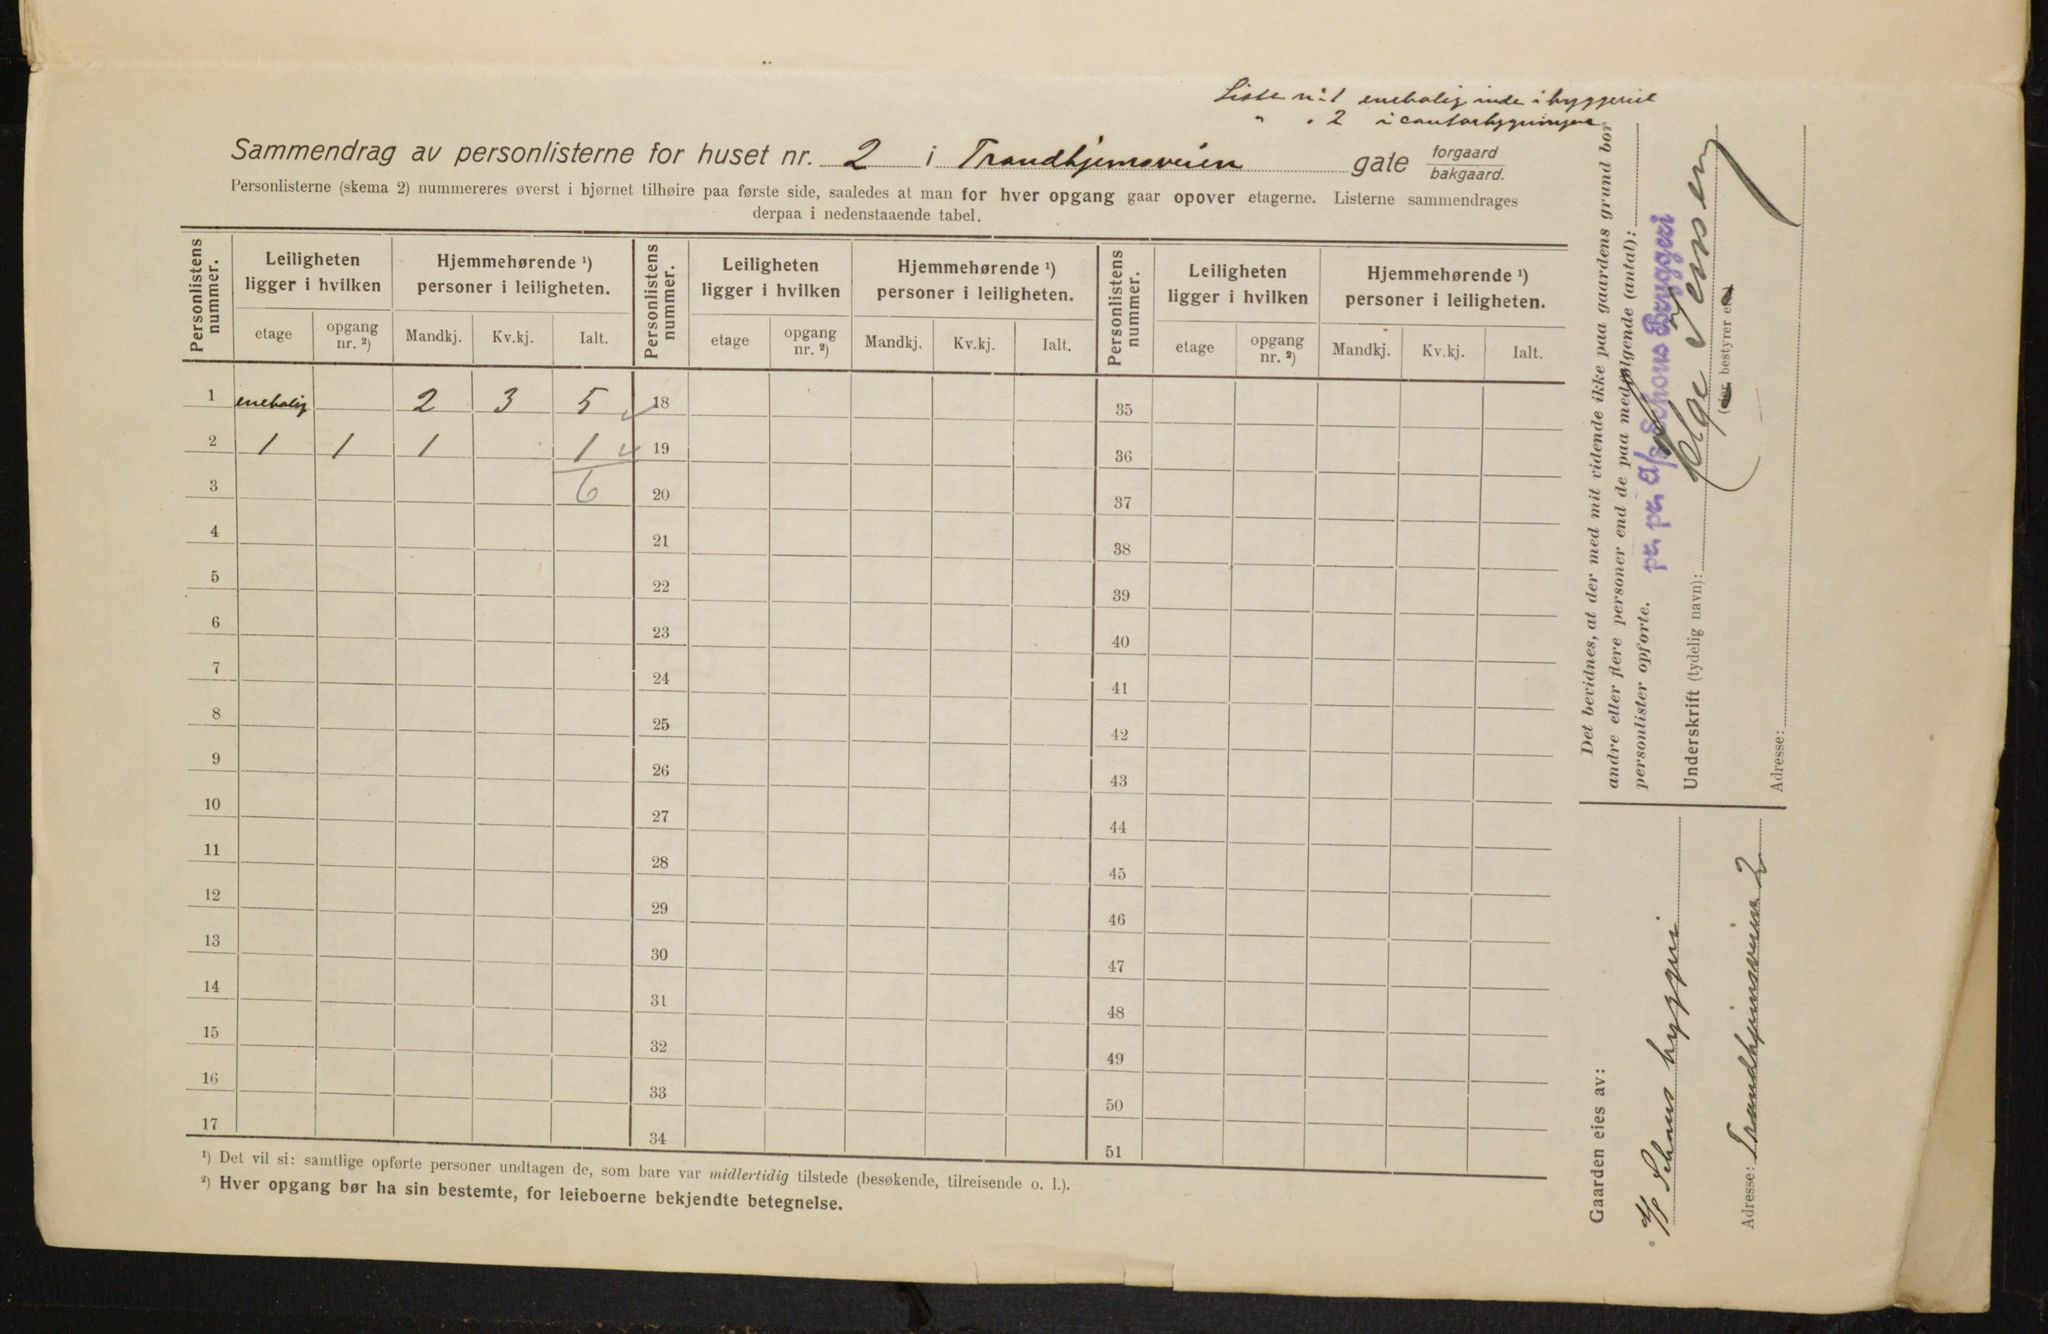 Liste nr 1 enebolig inde i bryggeriet
" " 2 i contorbygningen
Sammendrag av personlisterne for huset nr. 2 i Trondhjemsveien gate forgaard
bakgaard.
Personlisterne (skema 2) nummereres øverst i bjørnet tilhøire paa første side, saaledes at man for hver opgang gaar opover etagerne. Listerne sammendrages
derpaa i nedenstaaende tabel.
Personlistens nummer. Leiligheten ligger i hvilken Hjemmehørende ¹) personer i leiligheten. Personlistens nummer. Leiligheten ligger i hvilken Hjemmehørende ¹) personer i leiligheten. Personlistens nummer. Leiligheten ligger i hvilken Hjemmehørende ¹) personer i leiligheten.
etage opgang nr. ²) Mandkj. Kv.kj. Ialt. etage opgang nr. ²) Mandkj. Kv.kj. Ialt. etage opgang nr. ²) Mandkj. Kv.kj. Ialt.
1 enebolig 2 3 5 18 35
2 1 1 1 1 19 36
3 6 20 37
4 21 38
5 22 39
6 23 40
7 24 41
8 25 42
9 26 43
10 27 44
11 28 45
12 29 46
13 30 47
14 31 48
15 32 49
16 33 50
17 34 51
¹) Det vil si: samtlige opførte personer undtagen de, som bare var midlertidig tilstede (besøkende, tilreisende o. l.).
²) Hver opgang bør ha sin bestemte, for leieboerne bekjendte betegnelse.
Det bevidnes, at der med mit vidende ikke paa gaardens grund bor
andre eller flere personer end de paa medfølgende (antal):
personlister opførte.
pr. pr. A/S Schous Bryggeri
Underskrift (tydelig navn): Helge Jenssen
(eier bestyrer etc.)
Adresse:
Gaarden eies av:
A/S Schous bryggeri
Adresse: Trondhjemsveien 2